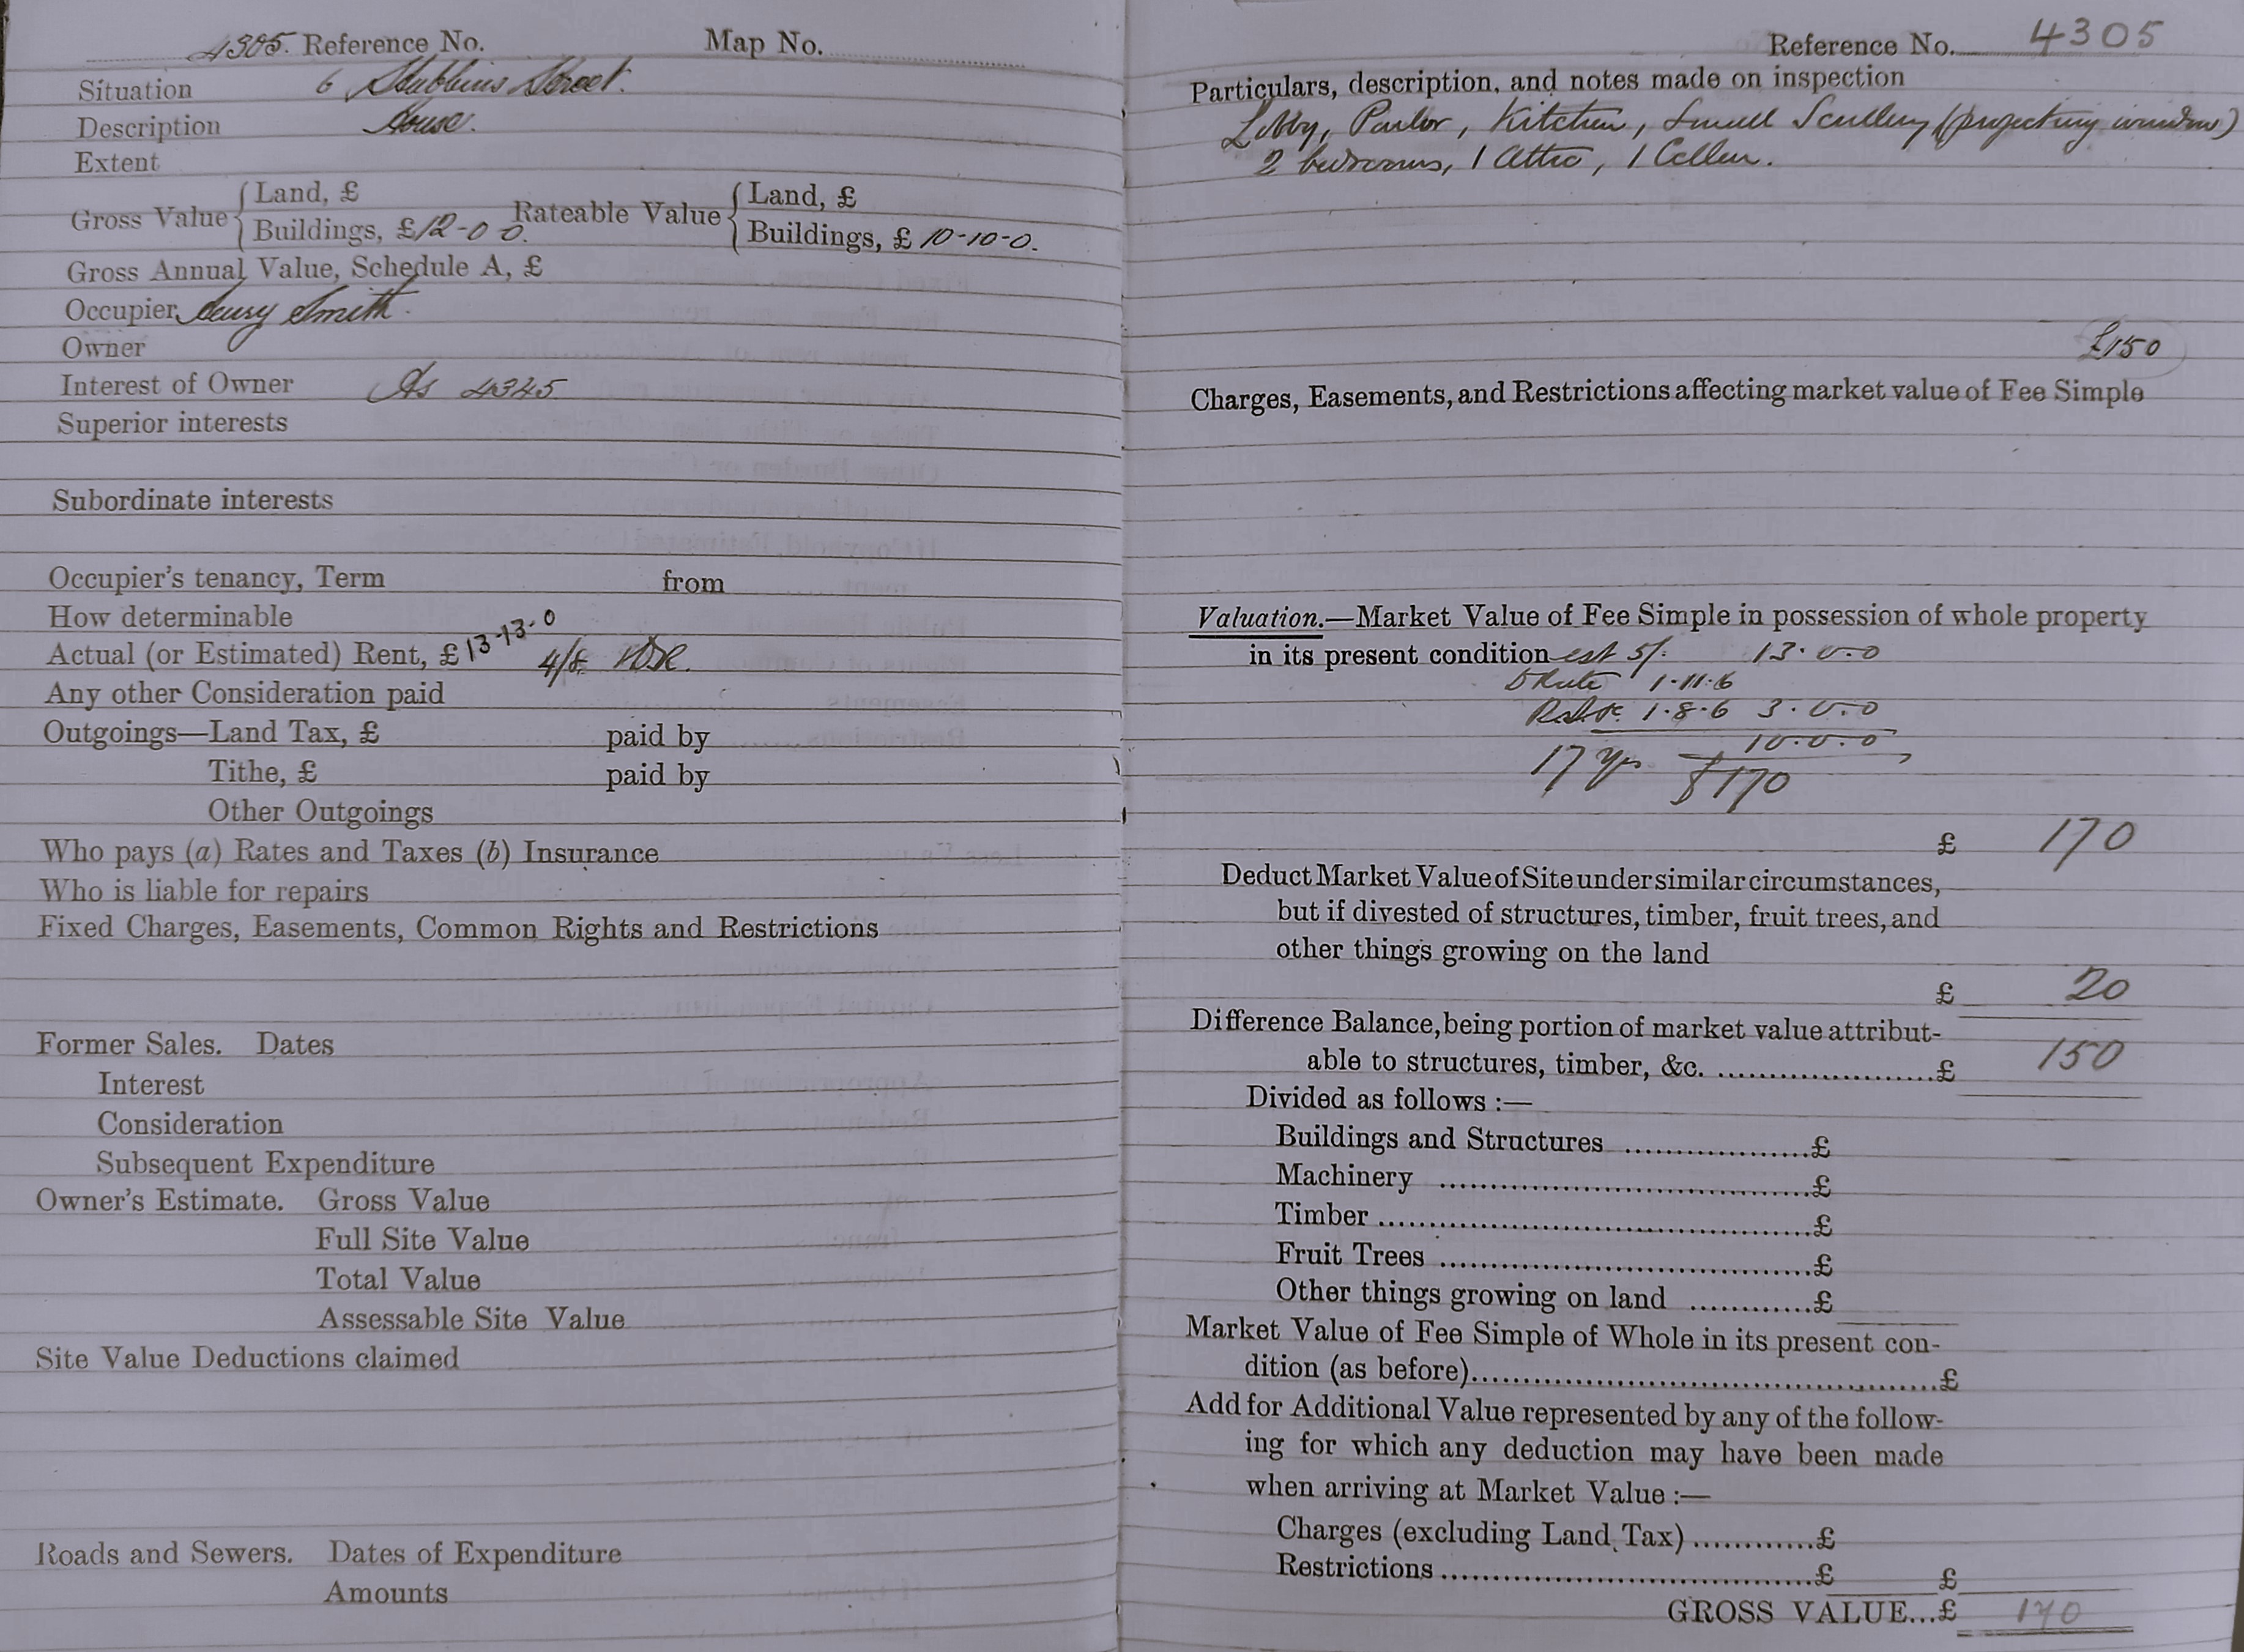 4305. Reference No. Map No.
Situation 6 Stubbins Street.
Description House.
Extent
Gross Value { Land, £
Buildings, £ 12-0 0. Rateable Value { Land, £
Buildings, £ 10-10-0.
Gross Annual Value, Schedule A, £
Occupier Henry Smith.
Owner
Interest of Owner As 4345
Superior interests
Subordinate interests
Occupier's tenancy, Term from
How determinable
Actual (or Estimated) Rent, £ 13-13-0 4/
Any other Consideration paid
Outgoings—Land Tax, £ paid by
Tithe, £ paid by
Other Outgoings
Who pays (a) Rates and Taxes (b) Insurance
Who is liable for repairs
Fixed Charges, Easements, Common Rights and Restrictions
Former Sales. Dates
Interest
Consideration
Subsequent Expenditure
Owner's Estimate. Gross Value
Full Site Value
Total Value
Assessable Site Value
Site Value Deductions claimed
Roads and Sewers. Dates of Expenditure
Amounts
Reference No. 4305
Particulars, description, and notes made on inspection
Lobby, Parlor, Kitchen, Small Scullery (projecting window)
2 bedrooms, 1 Attic, 1 Cellar.
£150
Charges, Easements, and Restrictions affecting market value of Fee Simple
Valuation.—Market Value of Fee Simple in possession of whole property
in its present condition est 5/. 13.0.0
Rate 1.11.6
1.8.6 3.0.0
10.0.0
17 Yrs £170
£ 170
Deduct Market Value of Site under similar circumstances,
but if divested of structures, timber, fruit trees, and
other things growing on the land
£ 20
Difference Balance, being portion of market value attribut-
able to structures, timber, &c. ........................£ 150
Divided as follows :—
Buildings and Structures ...................£
Machinery ....................................£
Timber ..........................................£
Fruit Trees ....................................£
Other things growing on land ............£
Market Value of Fee Simple of Whole in its present con-
dition (as before)..................................................£
Add for Additional Value represented by any of the follow-
ing for which any deduction may have been made
when arriving at Market Value :—
Charges (excluding Land Tax) ............£
Restrictions ......................................£ £
GROSS VALUE...£ 170